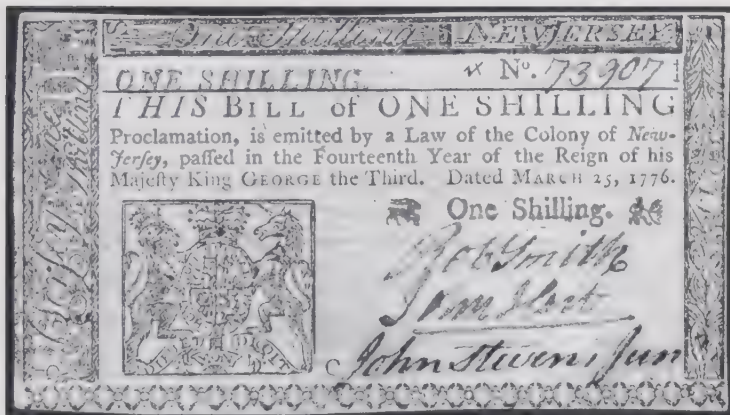 One Shilling NEW JERSEY
ONE SHILLING. No. 73907
THIS BILL of ONE SHILLING
Proclamation, is emitted by a Law of the Colony of New-
Jersey, paſſed in the Fourteenth Year of the Reign of his
Majeſty King GEORGE the Third. Dated MARCH 25, 1776.
One Shilling.
Rob Smith
John Stevens Jun
Shilling
DIEU ET DROIT